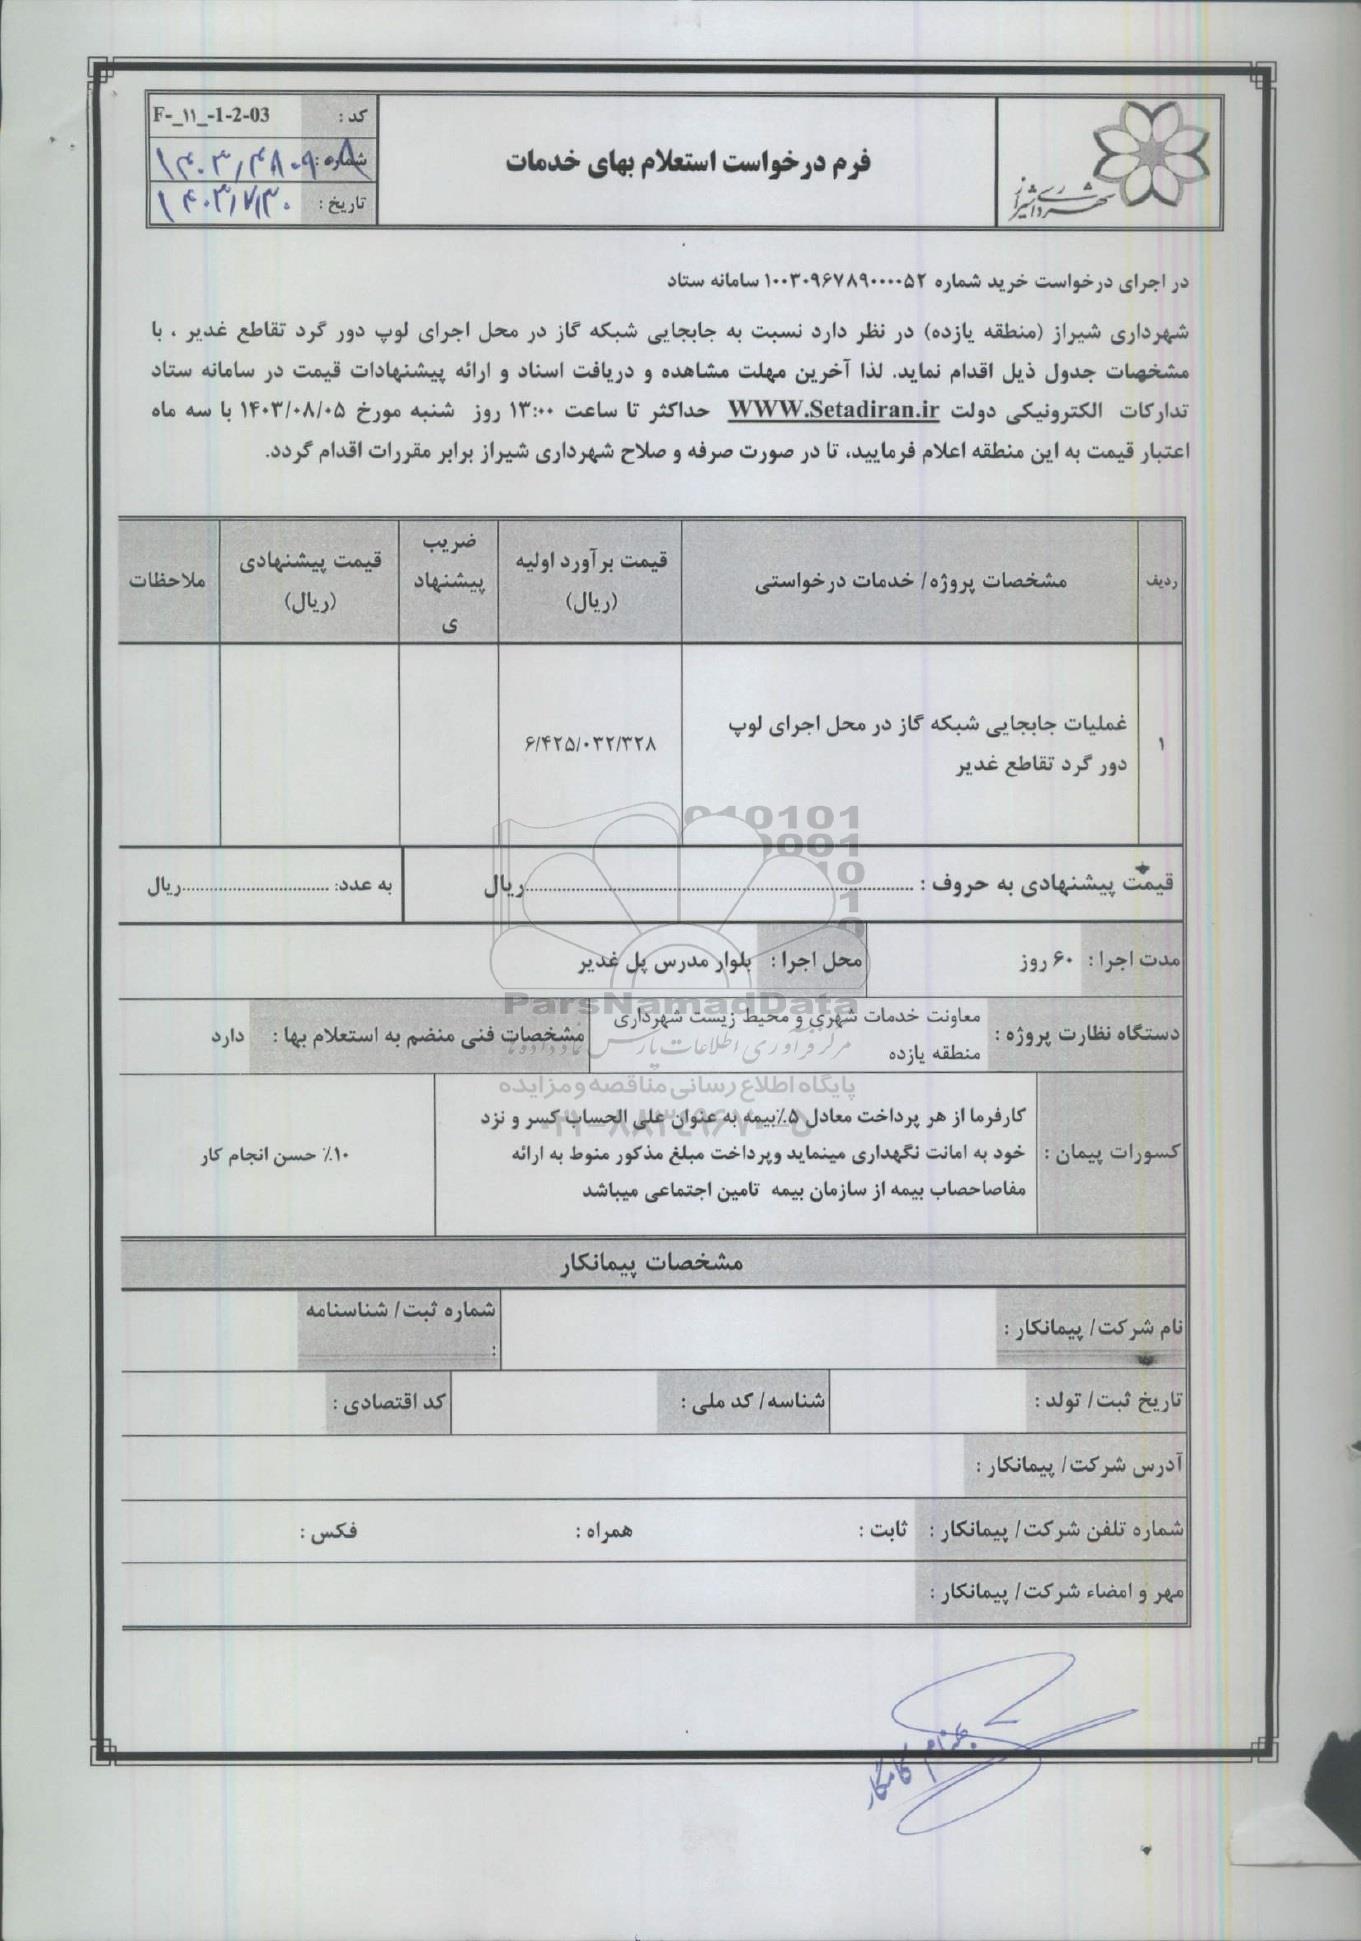 شهرداری شیراز
فرم درخواست استعلام بهای خدمات
کد : F-_۱۱_-1-2-03
شماره : ۱۴۰۳/۴۸۰۹۰۸
تاریخ : ۱۴۰۳/۷/۳۰
در اجرای درخواست خرید شماره ۱۰۰۳۰۹۶۷۸۹۰۰۰۰۵۲ سامانه ستاد
شهرداری شیراز (منطقه یازده) در نظر دارد نسبت به جابجایی شبکه گاز در محل اجرای لوپ دور گرد تقاطع غدیر ، با
مشخصات جدول ذیل اقدام نماید. لذا آخرین مهلت مشاهده و دریافت اسناد و ارائه پیشنهادات قیمت در سامانه ستاد
تدارکات الکترونیکی دولت WWW.Setadiran.ir حداکثر تا ساعت ۱۳:۰۰ روز شنبه مورخ ۱۴۰۳/۰۸/۰۵ با سه ماه
اعتبار قیمت به این منطقه اعلام فرمایید، تا در صورت صرفه و صلاح شهرداری شیراز برابر مقررات اقدام گردد.
ردیف
مشخصات پروژه/ خدمات درخواستی
قیمت برآورد اولیه
(ریال)
ضریب
پیشنهاد
ی
قیمت پیشنهادی
(ریال)
ملاحظات
۱
غملیات جابجایی شبکه گاز در محل اجرای لوپ
دور گرد تقاطع غدیر
۶/۴۲۵/۰۳۲/۳۲۸
قیمت پیشنهادی به حروف : ........................ریال
به عدد: ........................ریال
مدت اجرا : ۶۰ روز
محل اجرا : بلوار مدرس پل غدیر
دستگاه نظارت پروژه :
معاونت خدمات شهری و محیط زیست شهرداری
منطقه یازده
مشخصات فنی منضم به استعلام بها : دارد
کسورات پیمان :
کارفرما از هر پرداخت معادل ۵٪بیمه به عنوان علی الحساب کسر و نزد
خود به امانت نگهداری مینماید وپرداخت مبلغ مذکور منوط به ارائه
مفاصاحصاب بیمه از سازمان بیمه تامین اجتماعی میباشد
۱۰٪ حسن انجام کار
مشخصات پیمانکار
نام شرکت/ پیمانکار :
شماره ثبت/ شناسنامه
:
تاریخ ثبت/ تولد :
شناسه/ کد ملی :
کد اقتصادی :
آدرس شرکت/ پیمانکار :
شماره تلفن شرکت/ پیمانکار : ثابت : همراه : فکس :
مهر و امضاء شرکت/ پیمانکار :
ParsNamadData
مرکز فرآوری اطلاعات پارس نماد داده ها
پایگاه اطلاع رسانی مناقصه و مزایده
۰۲۱-۸۸۳۴۹۶۷۰-۵
بهنام کامگار